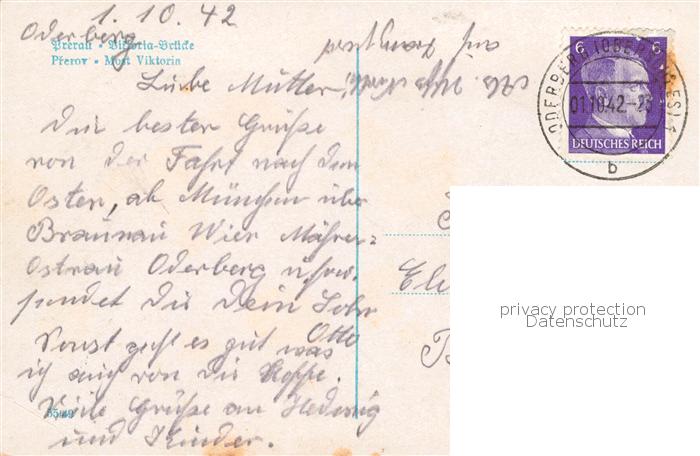 Oderberg 1.10.42
Prerau • Viktoria-Brücke
Přerov • Most Viktoria
Liebe Mutter!
Die besten Grüße
von der Fahrt nach dem
Osten, ab München über
Braunau Wien Mähr=
Ostrau Oderberg usw.
sendet dir Dein Sohn
Otto
Sonst geht es gut was
ich auch von dir hoffe.
Viele Grüße an Hedwig
und Kinder.
auf
6 6
ODERBERG (OBERSCHLES) 1
01.10.42-23
DEUTSCHES REICH
b
privacy protection
Datenschutz